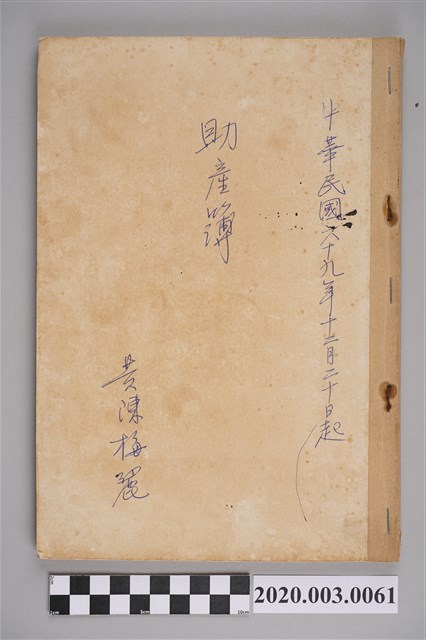 中華民國六十九年十二月二十日起
助產簿
黃陳梅麗
1cm 5cm 10cm
2020.003.0061